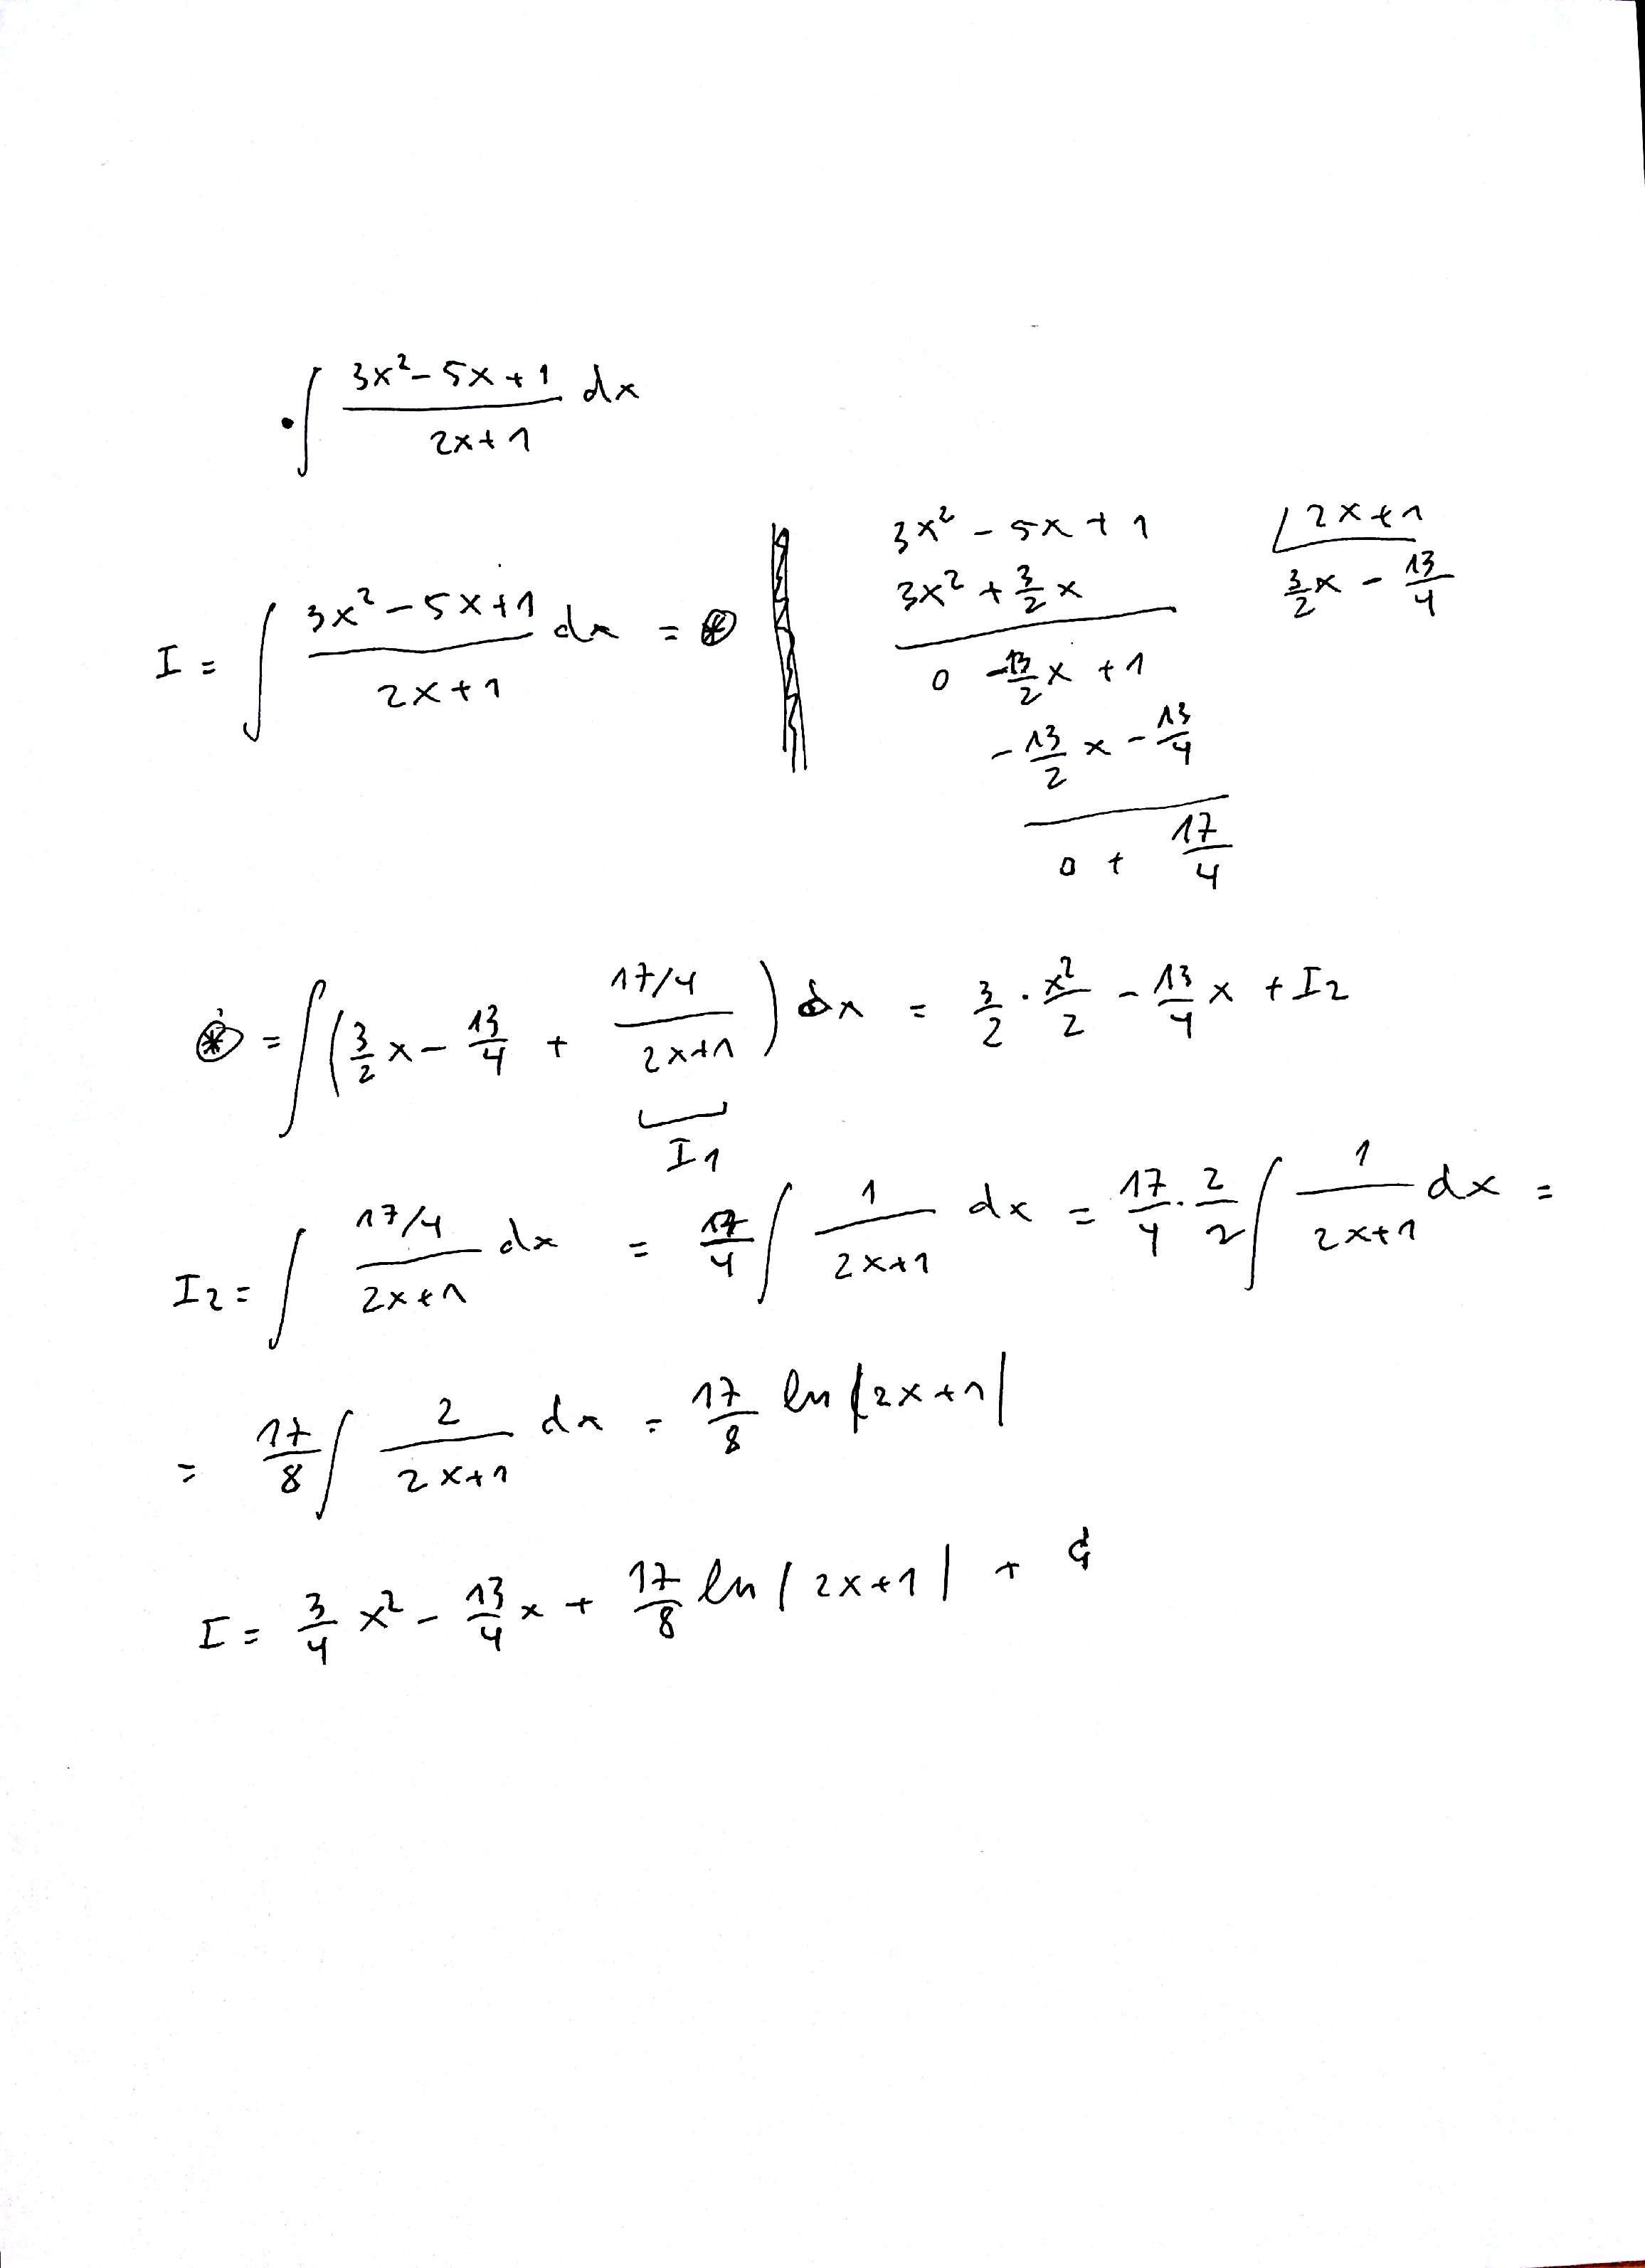 • ∫ (3x² - 5x + 1)/(2x + 1) dx
I = ∫ (3x² - 5x + 1)/(2x + 1) dx = ⊛
3x² - 5x + 1 | 2x + 1
3x² + 3/2 x    3/2 x - 13/4
0 - 13/2 x + 1
- 13/2 x - 13/4
0 + 17/4
⊛ = ∫ (3/2 x - 13/4 + (17/4)/(2x + 1)) dx = 3/2 · x²/2 - 13/4 x + I2
I1
I2 = ∫ (17/4)/(2x + 1) dx = 17/4 ∫ 1/(2x + 1) dx = 17/4 · 2/2 ∫ 1/(2x + 1) dx =
= 17/8 ∫ 2/(2x + 1) dx = 17/8 ln |2x + 1|
I = 3/4 x² - 13/4 x + 17/8 ln |2x + 1| +